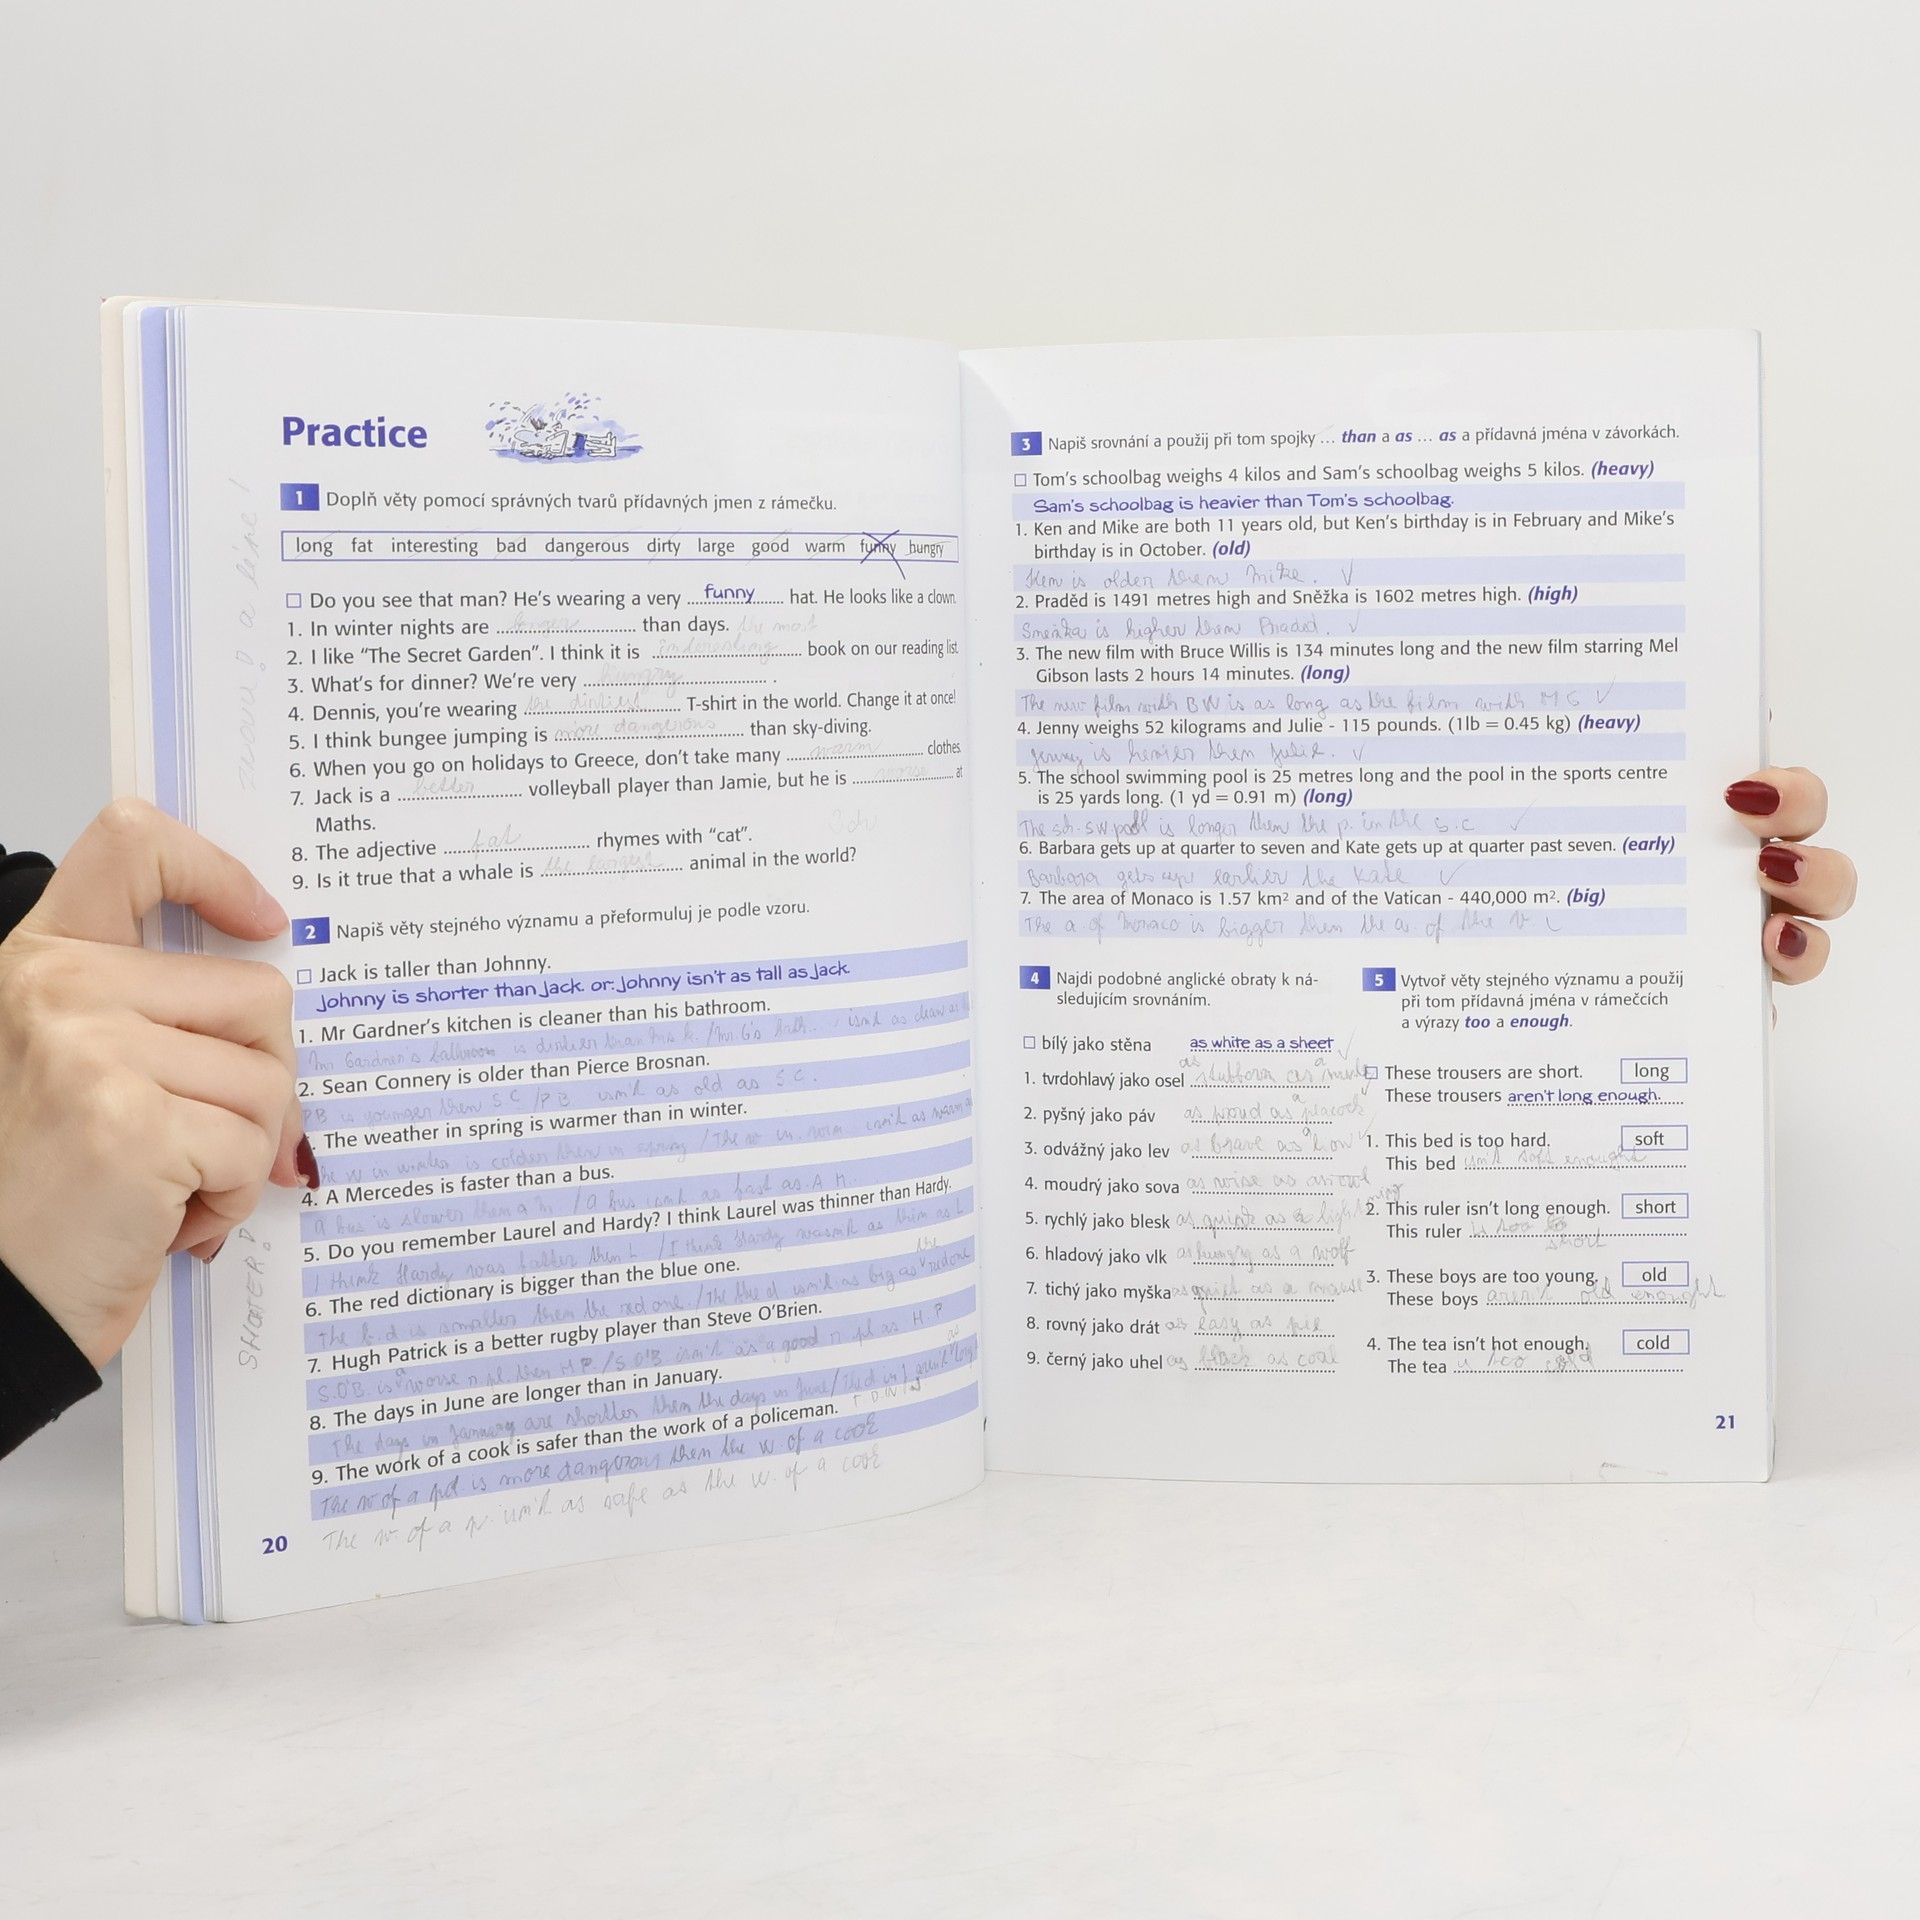 Practice
1 Doplň věty pomocí správných tvarů přídavných jmen z rámečku.
long fat interesting bad dangerous dirty large good warm funny hungry
Do you see that man? He's wearing a very funny hat. He looks like a clown.
1. In winter nights are longer than days. the most
2. I like “The Secret Garden”. I think it is interesting book on our reading list.
3. What's for dinner? We're very hungry .
4. Dennis, you're wearing the dirtiest T-shirt in the world. Change it at once!
5. I think bungee jumping is more dangerous than sky-diving.
6. When you go on holidays to Greece, don't take many warm clothes.
7. Jack is a better volleyball player than Jamie, but he is worse at
Maths.
8. The adjective fat rhymes with “cat”.
9. Is it true that a whale is the largest animal in the world?
2 Napiš věty stejného významu a přeformuluj je podle vzoru.
Jack is taller than Johnny.
Johnny is shorter than Jack. or: Johnny isn't as tall as Jack.
1. Mr Gardner's kitchen is cleaner than his bathroom.
Mr Gardner's bathroom is dirtier than his k. / Mr. G's bath... isn't as
2. Sean Connery is older than Pierce Brosnan.
PB is younger then SC / PB isn't as old as S.C.
The weather in spring is warmer than in winter.
w in winter is colder then in spring / The w in. isn't as warm
4. A Mercedes is faster than a bus.
A bus is slower then a m. / A bus isn't as fast as A M.
5. Do you remember Laurel and Hardy? I think Laurel was thinner than Hardy.
I think Hardy was fatter then L / I think Hardy wasn't as thin as L
6. The red dictionary is bigger than the blue one. the
The b.d is smaller then the red one. / The b d isn't as big as red one
7. Hugh Patrick is a better rugby player than Steve O'Brien.
S.O'B. is a worse r. pl. then H P. / S O'B isn't as a good r pl as H P
8. The days in June are longer than in January. as
The days in January are shorter then the days in June / The d in J aren't long
9. The work of a cook is safer than the work of a policeman.
The w of a pol. is more dangerous then the w. of a cook
The w. of a p. isn't as safe as the w. of a cook
20
3 Napiš srovnání a použij při tom spojky ... than a as ... as a přídavná jména v závorkách.
Tom's schoolbag weighs 4 kilos and Sam's schoolbag weighs 5 kilos. (heavy)
Sam's schoolbag is heavier than Tom's schoolbag.
1. Ken and Mike are both 11 years old, but Ken's birthday is in February and Mike's
birthday is in October. (old)
Ken is older then Mike.
2. Praděd is 1491 metres high and Sněžka is 1602 metres high. (high)
Sněžka is higher then Praděd.
3. The new film with Bruce Willis is 134 minutes long and the new film starring Mel
Gibson lasts 2 hours 14 minutes. (long)
The new film with BW is as long as the film with M G
4. Jenny weighs 52 kilograms and Julie - 115 pounds. (1lb = 0.45 kg) (heavy)
Jenny is hevier then Julie.
5. The school swimming pool is 25 metres long and the pool in the sports centre
is 25 yards long. (1 yd = 0.91 m) (long)
The sch. sw. pool is longer then the p. in the s.c
6. Barbara gets up at quarter to seven and Kate gets up at quarter past seven. (early)
Barbara gets up earlier the Kate
7. The area of Monaco is 1.57 km² and of the Vatican - 440,000 m². (big)
The a. of Monaco is bigger then the a. of the V.
4 Najdi podobné anglické obraty k ná-
sledujícím srovnáním.
bílý jako stěna as white as a sheet
1. tvrdohlavý jako osel as as a
2. pyšný jako páv as proud as a peacock
3. odvážný jako lev as brave as a lion
4. moudrý jako sova as wise as an owl
5. rychlý jako blesk as quick as lightning
6. hladový jako vlk as hungry as a wolf
7. tichý jako myška as quiet as a mouse
8. rovný jako drát as easy as pie
9. černý jako uhel as black as coal
5 Vytvoř věty stejného významu a použij
při tom přídavná jména v rámečcích
a výrazy too a enough.
These trousers are short. long
These trousers aren't long enough.
1. This bed is too hard. soft
This bed isn't soft enough
2. This ruler isn't long enough. short
This ruler is too short
3. These boys are too young. old
These boys aren't old enought
4. The tea isn't hot enough. cold
The tea is too cold
21